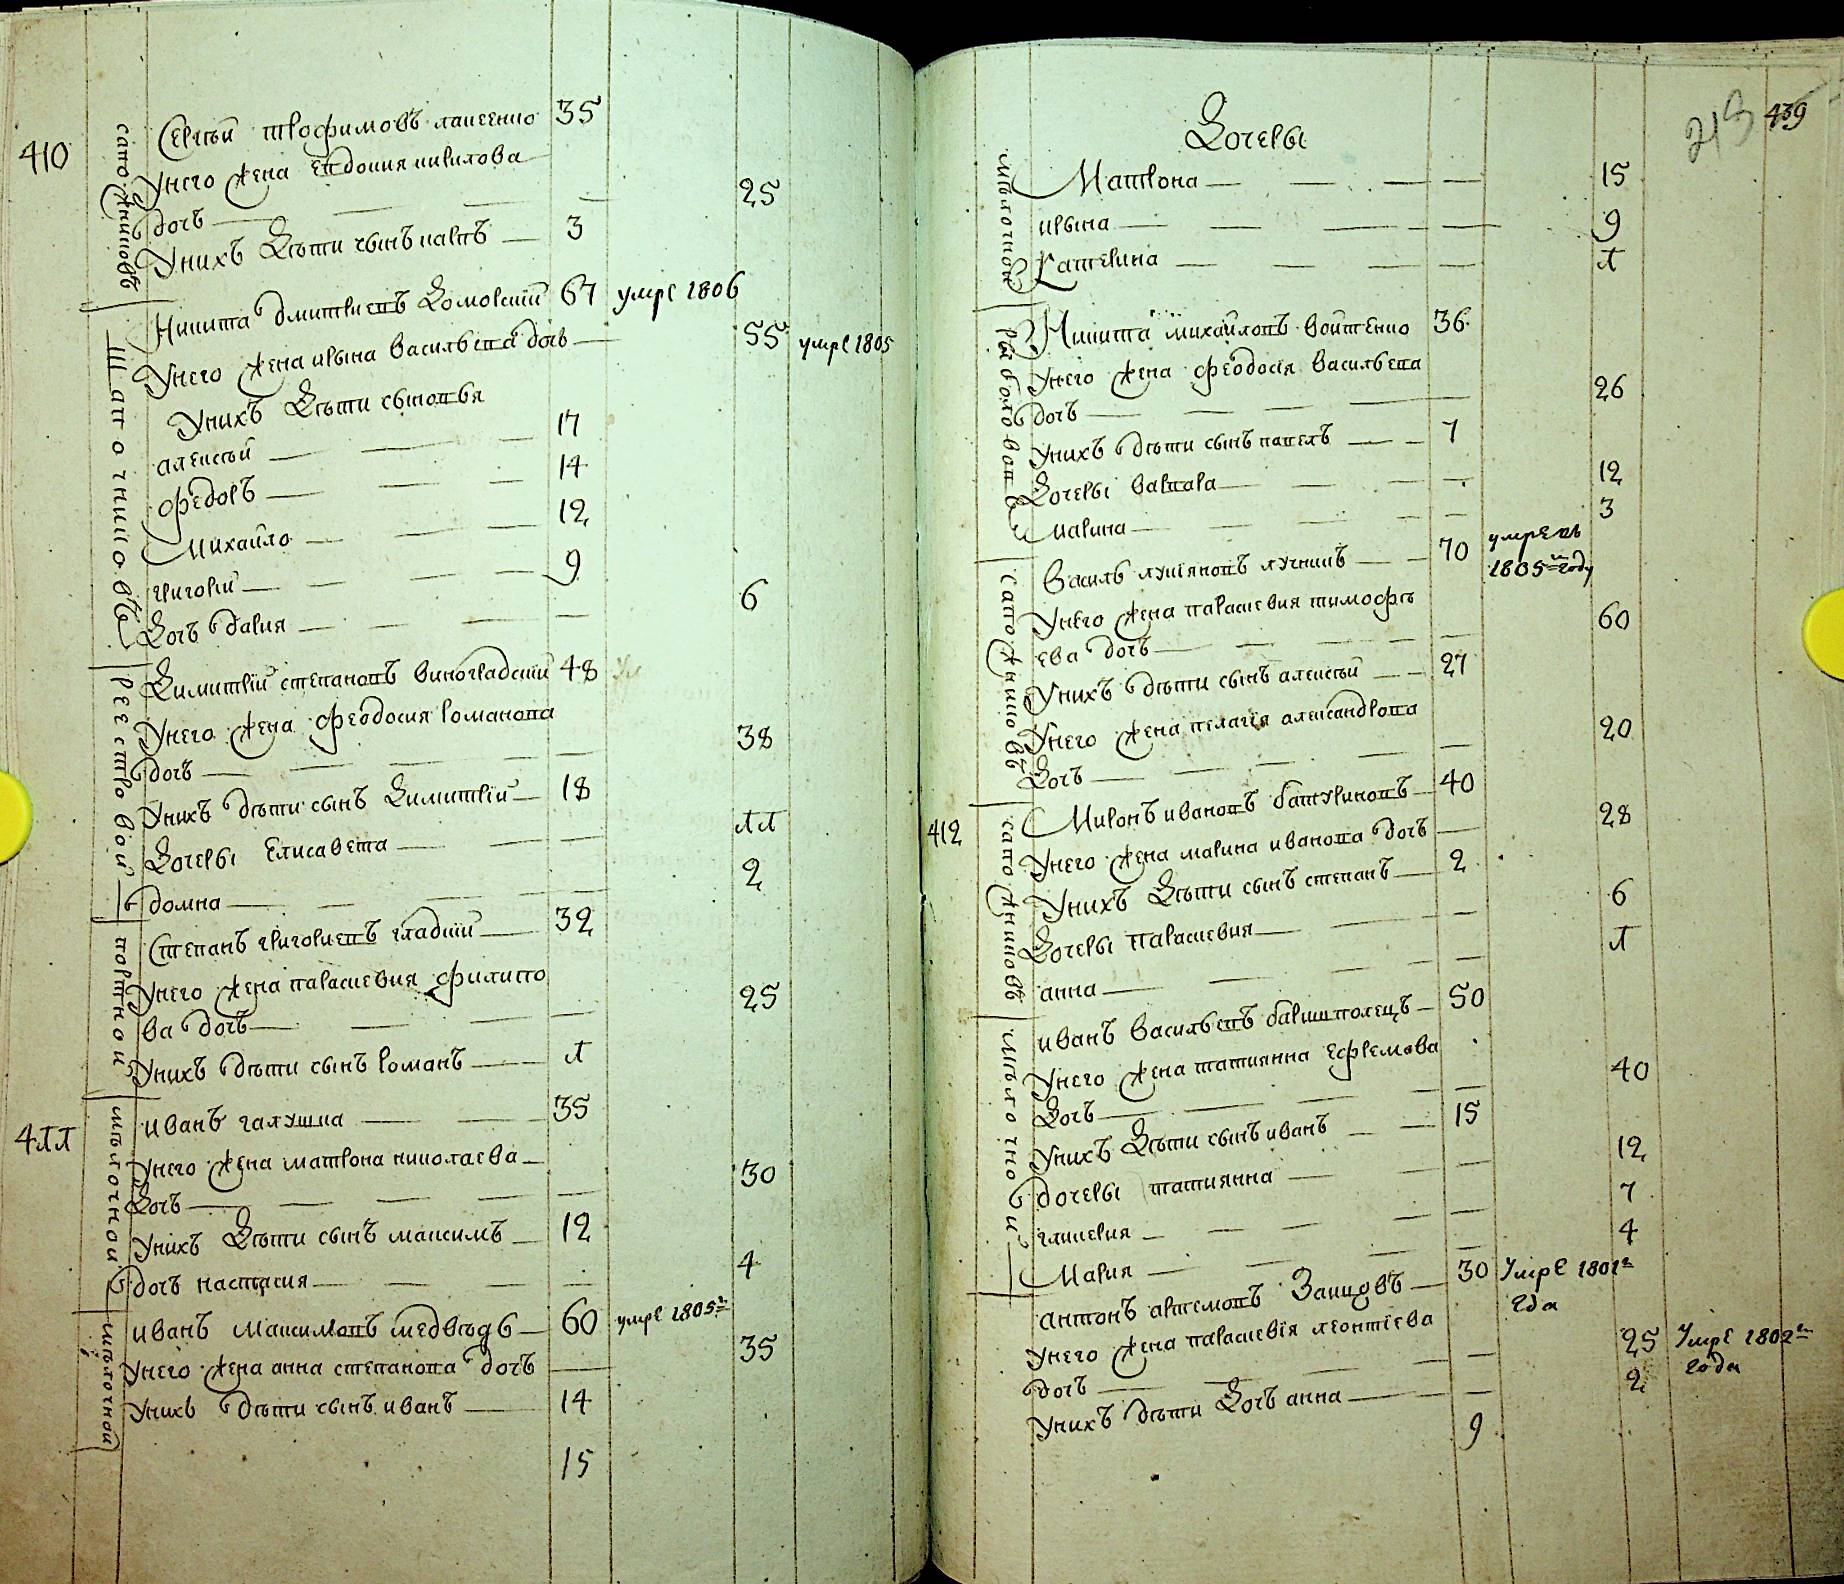 410
сапожниковъ
Сергѣй трофимовъ лаксенко 35
Унего жена евдокия кирилова
дочь 25
Унихъ Дѣти сынъ карпъ 3
Шапочниковъ
Никита дмитриевъ Коморский 67 умре 1806
Унего жена ирына васильева дочь 55 умре 1805
Унихъ Дѣти сыновья
алексѣй 17
федоръ 14
Михайло 12
григорий 9
Дочь дария 6
реестровой
Димитрїй степановъ виноградский 48
Унего жена феодосия романова
дочь 38
Унихъ дѣти сынъ Димитрїй 18
Дочеры Елисавета 11
домна 2
портной
Степанъ григориевъ гладкий 32
Унего жена параскевия филипо
ва дочь 25
Унихъ дѣти сынъ романъ 1
411
мѣлочной
иванъ галушка 35
Унего жена матрона николаева
Дочь 30
Унихъ Дѣти сынъ максимъ 12
дочь настасия 4
мѣлочной
иванъ максимовъ медвѣдь 60 умре 1805г
Унего жена анна степанова дочь 35
Унихъ дѣти сынъ иванъ 14
15
213 439
Дочеры
мѣлочной
Матрона 15
ирына 9
Катерина 1
рыболововъ
Никита михайловъ войтенко 36
Унего жена феодосїя васильева
дочь 26
Унихъ дѣти сынъ павелъ 7
Дочеры варвара 12
марина 3
сапожниковъ
василь лукїяновъ лучникъ 70 умре въ
1805м году
Унего жена параскевия тимофѣ
ева дочь 60
Унихъ дѣти сынъ алексѣй 27
Унего жена пелагїя александрова
Дочь 20
412
сапожниковъ
Миронъ ивановъ батуриновъ 40
Унего жена марина иванова дочь 28
Унихъ Дѣти сынъ степанъ 2
Дочеры параскевия 6
анна 1
мѣлочной
иванъ васильевъ баришполецъ 50
Унего жена татиянна ефремова
Дочь 40
Унихъ Дѣти сынъ иванъ 15
дочеры татиянна 12
гликерия 7
Мария 4
антонъ артемовъ Заицовъ 30 Умре 1801г
года
Унего жена параскевїя леонтїева
дочь 25 Умре 1802г
года
Унихъ дѣти Дочь анна 2
9